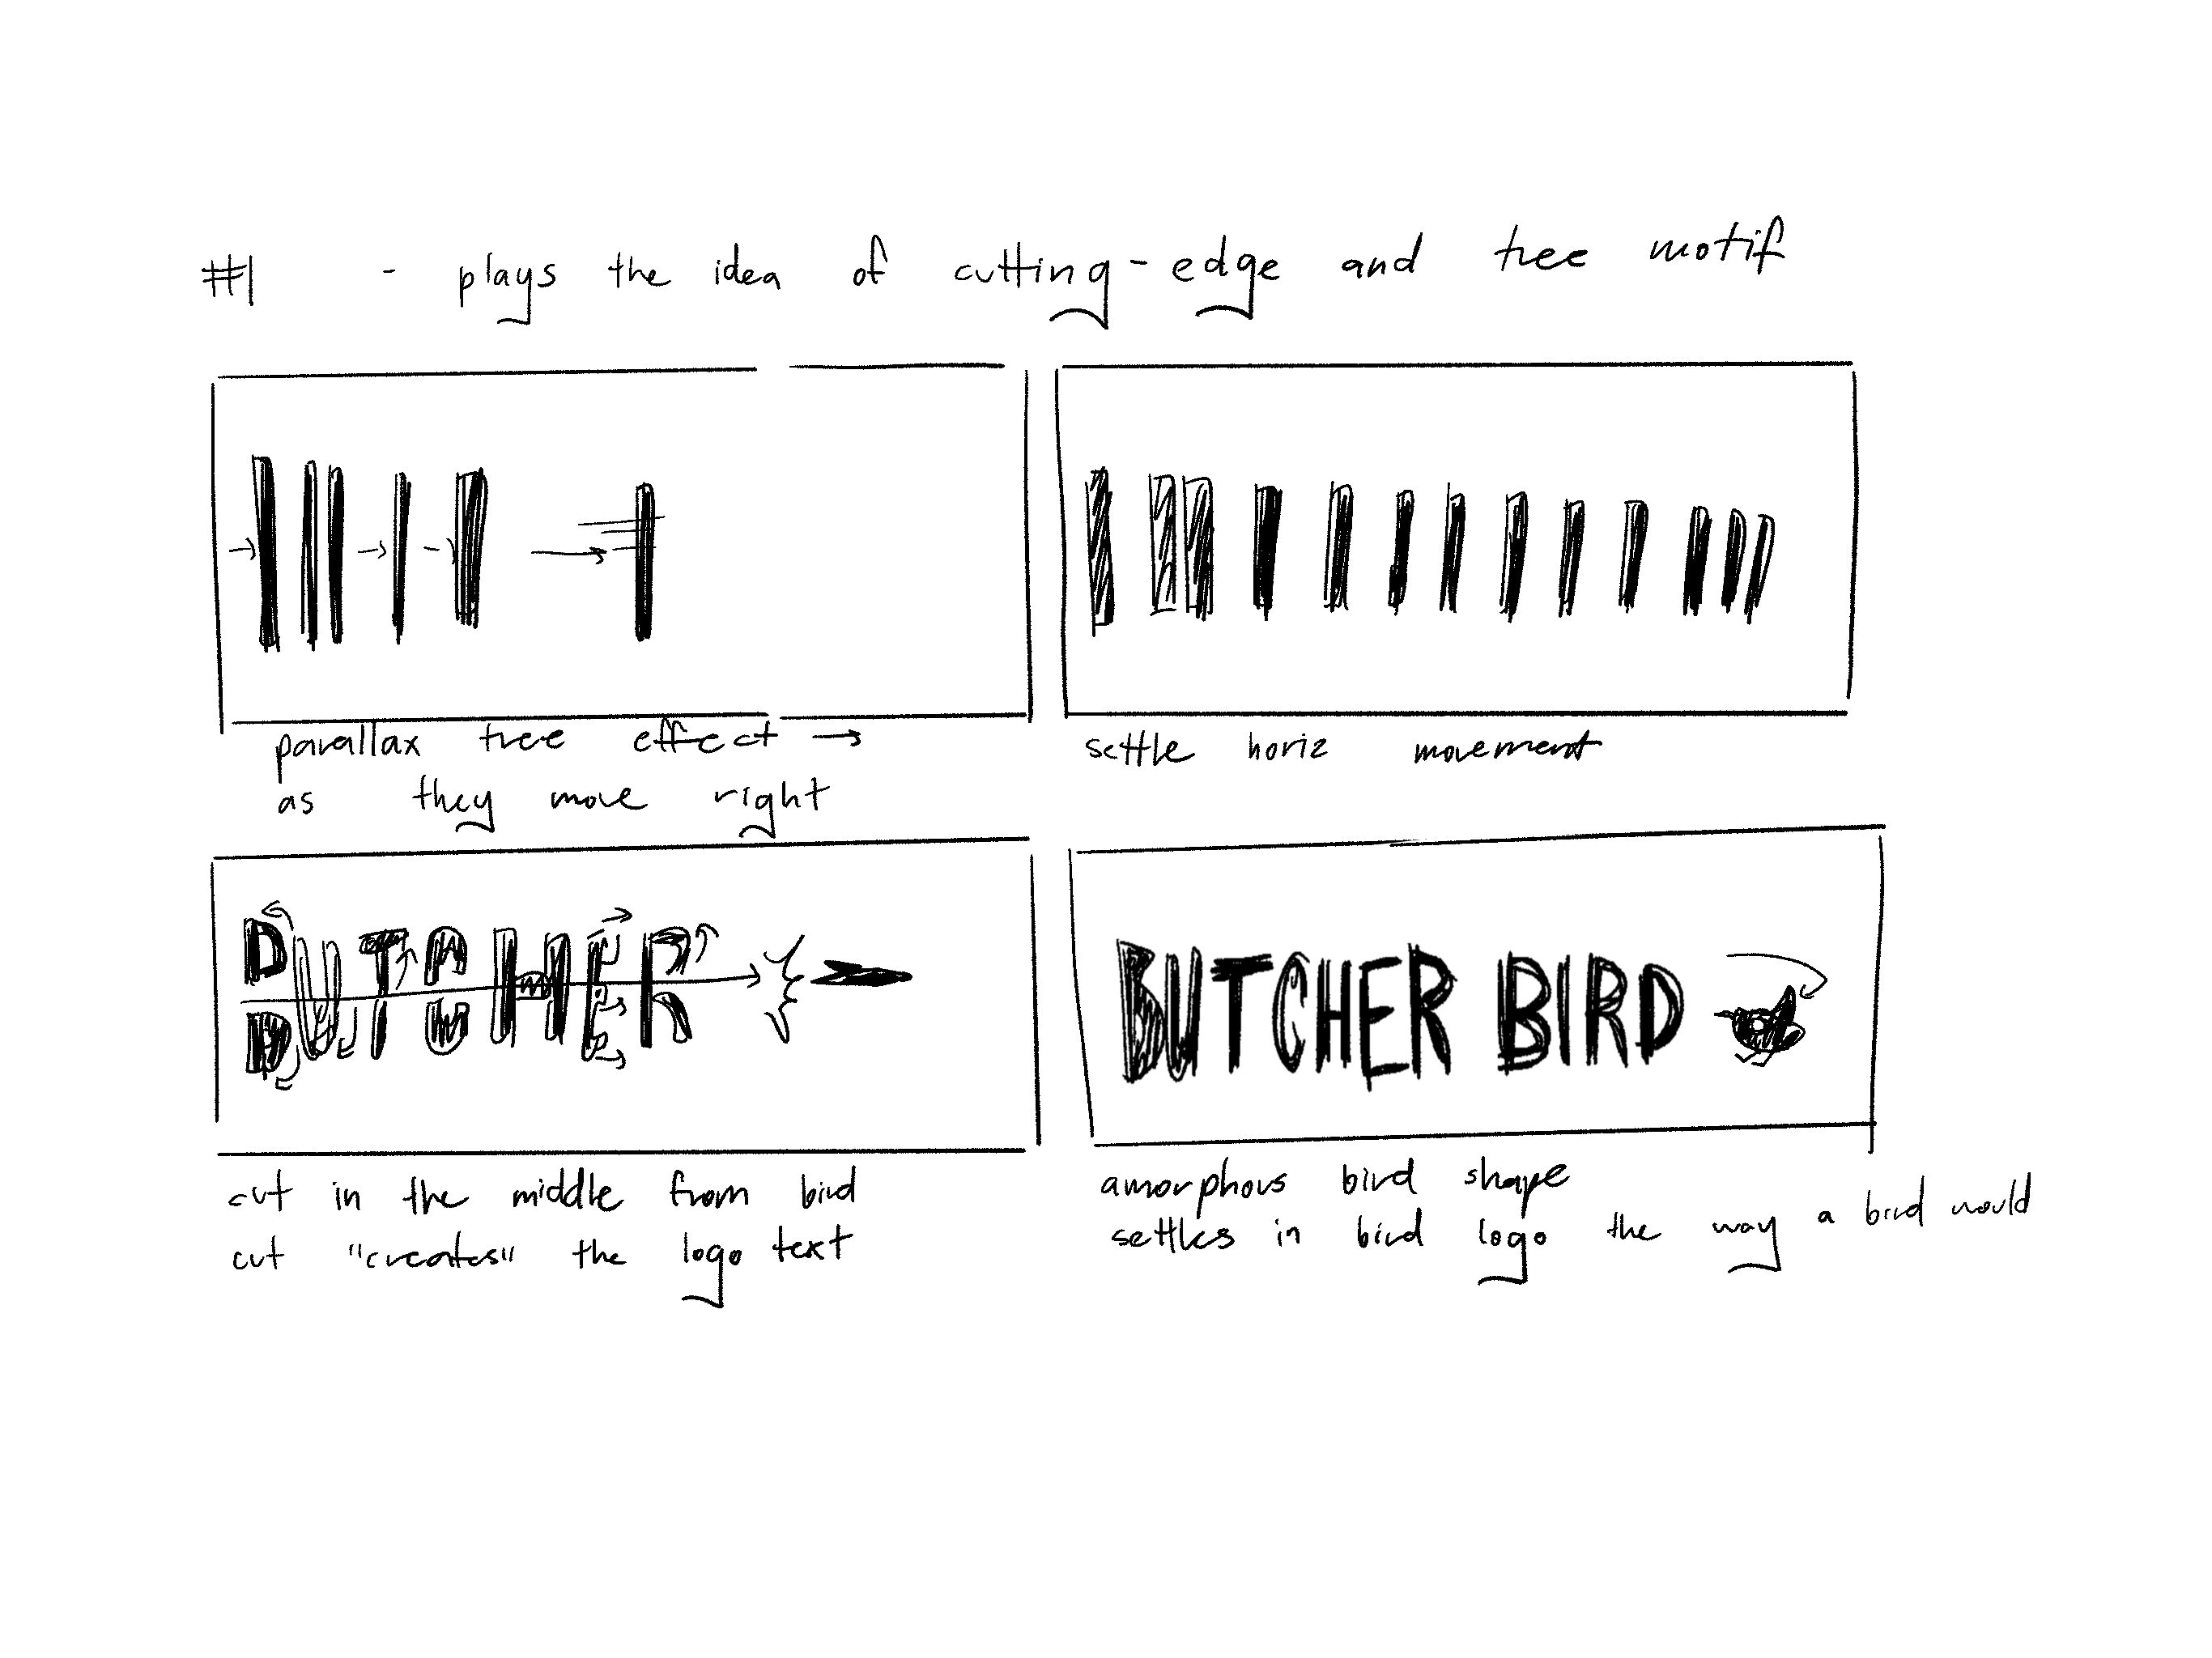 #1 - plays the idea of cutting-edge and tree motif
parallax tree effect →
as they move right
settle horiz movement
BUTCHER
cut in the middle from bird
cut "creates" the logo text
BUTCHER BIRD
amorphous bird shape
settles in bird logo the way a bird would